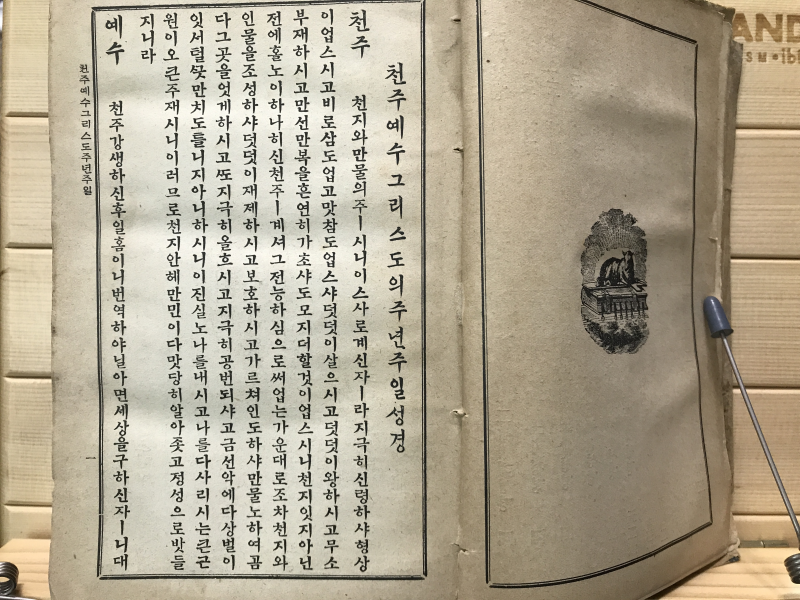 천주예수그리스도의주년주일성경
천주 천지와만물의주ㅣ시니이스사로계신자ㅣ라지극히신령하샤형상
이업스시고비로삼도업고맛참도업스샤덧덧이살으시고덧덧이왕하시고무소
부재하시고만선만복을흔연히가초샤도모지더할것이업스시니천지잇지아닌
전에홀노이하나히신천주ㅣ계셔그전능하심으로써업는가운대로조차천지와
인물을조성하샤덧덧이재제하시고보호하시고가르쳐인도하샤만물노하여곰
다그곳을엇게하시고ᄯᅩ지극히올흐시고지극히공번되샤고금선악에다상벌이
잇서털ᄭᅳᆺ만치도틀니지아니하시니이진실노나를내시고나를다사리시는큰근
원이오큰주재시니이러므로천지안헤만민이다맛당히알아좃고정성으로밧들
지니라
예수 천주강생하신후일홈이니번역하야닐아면세상을구하신자ㅣ니대
천주예수그리스도주년주일
一
AND
SM•ibl